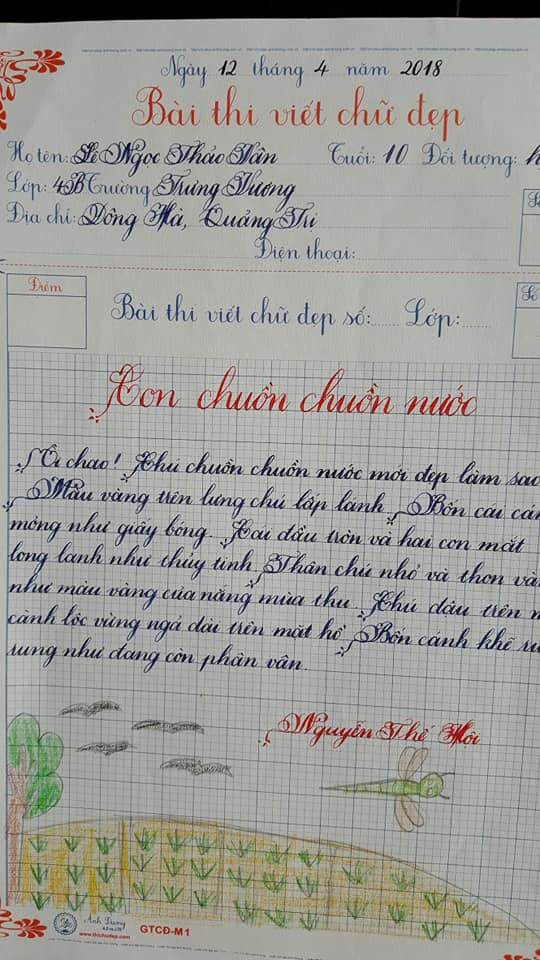 Ngày 12 tháng 4 năm 2018
Bài thi viết chữ đẹp
Họ tên: Lê Ngọc Thảo Vân Tuổi: 10 Đối tượng: h
Lớp: 4B Trường Trưng Vương
Địa chỉ: Đông Hà, Quảng Trị
Điện thoại:
Điểm
Bài thi viết chữ đẹp số: Lớp:
Số
Con chuồn chuồn nước
Ôi chao! Chú chuồn chuồn nước mới đẹp làm sao
Màu vàng trên lưng chú lấp lánh. Bốn cái cán
mỏng như giấy bóng. Cái đầu tròn và hai con mắt
long lanh như thủy tinh. Thân chú nhỏ và thon và
như màu vàng của nắng mùa thu. Chú đậu trên m
cành lộc vừng ngả dài trên mặt hồ. Bốn cánh khẽ ru
rung như đang còn phân vân.
Nguyễn Thế Hội
Ánh Dương
www.thichudep.com
GTCĐ-M1